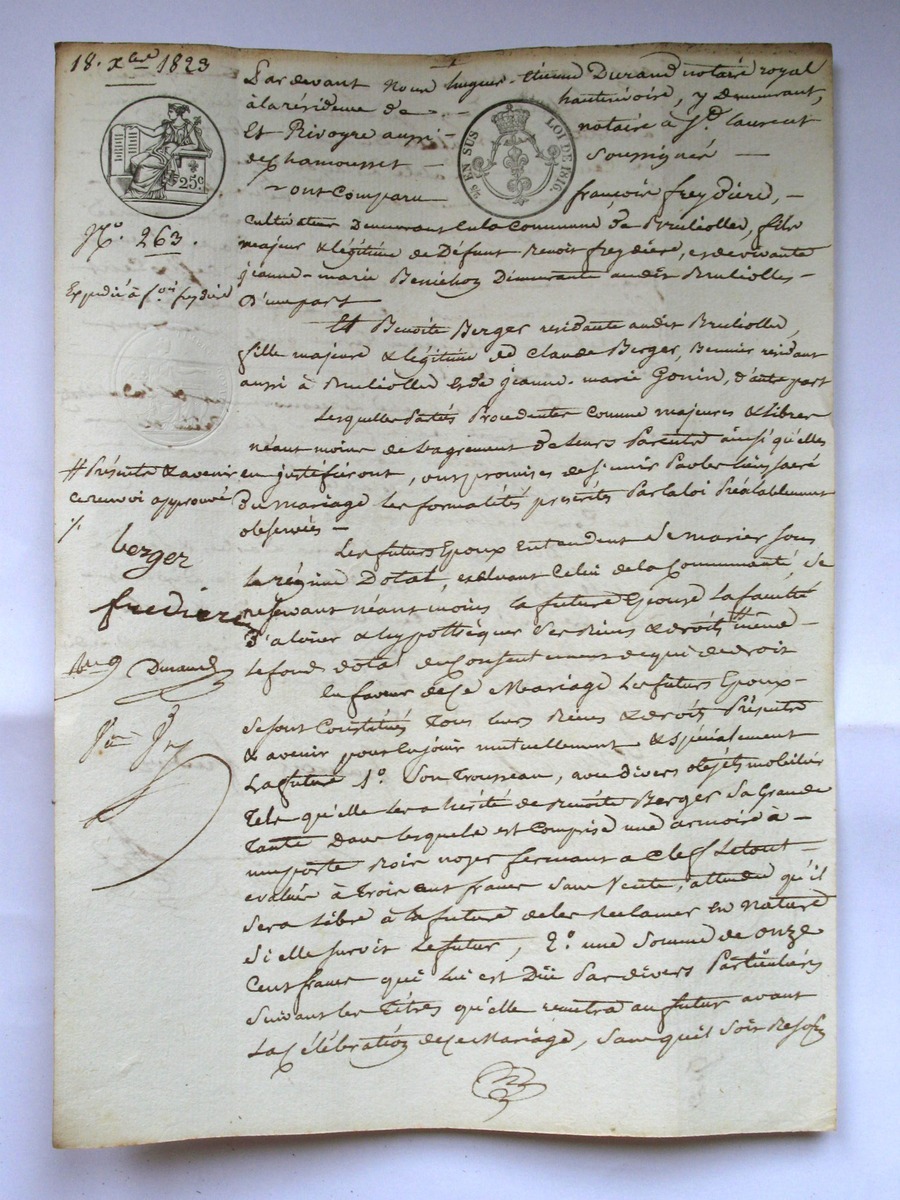 18. Xbre 1823
Par devant Nous hugues-Etienne Durand notaire royal
à la résidence de hauterivoire, y Demeurant,
Et Rivoyre aussi notaire à St. Laurent
de Chamousset soussignés
ont Comparu françois freydiere,
25 EN SUS LOI DE 1816
25c
No. 263.
Expédié à fois freydiere
Cultivateur Demeurant en la Commune de Bruliolles, fils
majeur & légitime de Défunt Benoit freydiere, et de vivante
jeanne-marie Demeurante audit Bruliolles
D'une part
Et Benoite Berger residante audit Bruliolles,
fille majeure & légitime de Claude Berger, résidant
aussi à Bruliolles et de jeanne-marie Gonin, d'autre part
Lesquelles Parties Procedantes Comme majeures & libres
néant moins de l'agrement de leurs Parents ainsi qu'elles
en justifieront, ont promises de s'unir Par les liens sacré
du mariage les formalités préscrites Par la loi Préalablement
observées
# Présents & avenir
ce renvoi approuvé
berger
frediere
Durand
Les futurs Epoux entendent se marier sous
le régime Dotal, excluant Celui de la Communauté, se
reservant néant moins la future Epouse la faculté
d'aliéner & hypothéquer ses Biens & droits # même
le fond dotal du consentement de qui de droit
En faveur de ce Mariage les futurs Epoux
se sont Constitués Tous leurs Biens & droits Présents
& avenir pour en jouir mutuellement & spécialement
La future 1o. Son Trousseau, avec divers objets mobiliers
Tels qu'elle les a hérité de Benoite Berger sa Grande
Tante Dans lesquels est Comprise une armoire à
une porte Bois noyer fermant à Clef Le tout
evalué à Trois cent francs sans Vente, attendu qu'il
sera Libre à la future de les Reclamer en Nature
si elle survit Le futur, 2o. une Somme de onze
Cent francs qui lui est Dûe Par divers Particuliers
suivant les Titres qu'elle remettra au futur avant
La Célébration de ce Mariage, sans qu'il soit